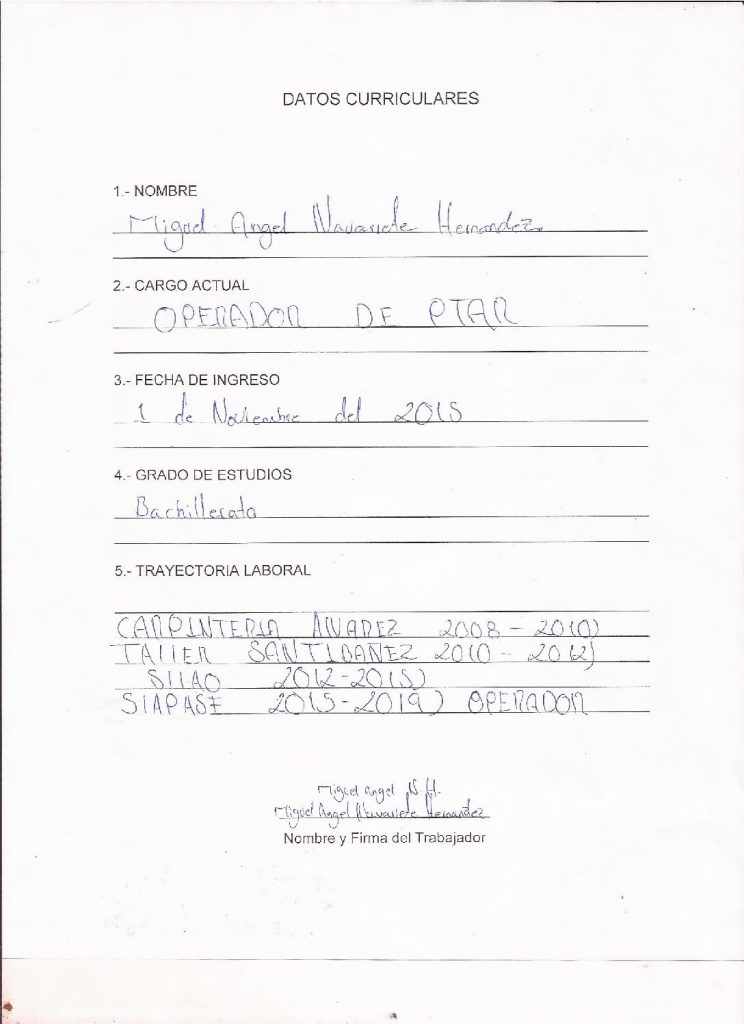 DATOS CURRICULARES
1.- NOMBRE
Miguel Angel Navarrete Hernandez
2.- CARGO ACTUAL
OPERADOR DE PTAR
3.- FECHA DE INGRESO
1 de Noviembre del 2015
4.- GRADO DE ESTUDIOS
Bachillerato
5.- TRAYECTORIA LABORAL
CARPINTERIA ALVAREZ 2008 - 2010)
TALLER SANTIBAÑEZ 2010 - 2012)
2012-2015)
SIAPASE 2015-2019) OPERADOR
Miguel angel N.H.
Miguel Angel Navarrete Hernandez
Nombre y Firma del Trabajador